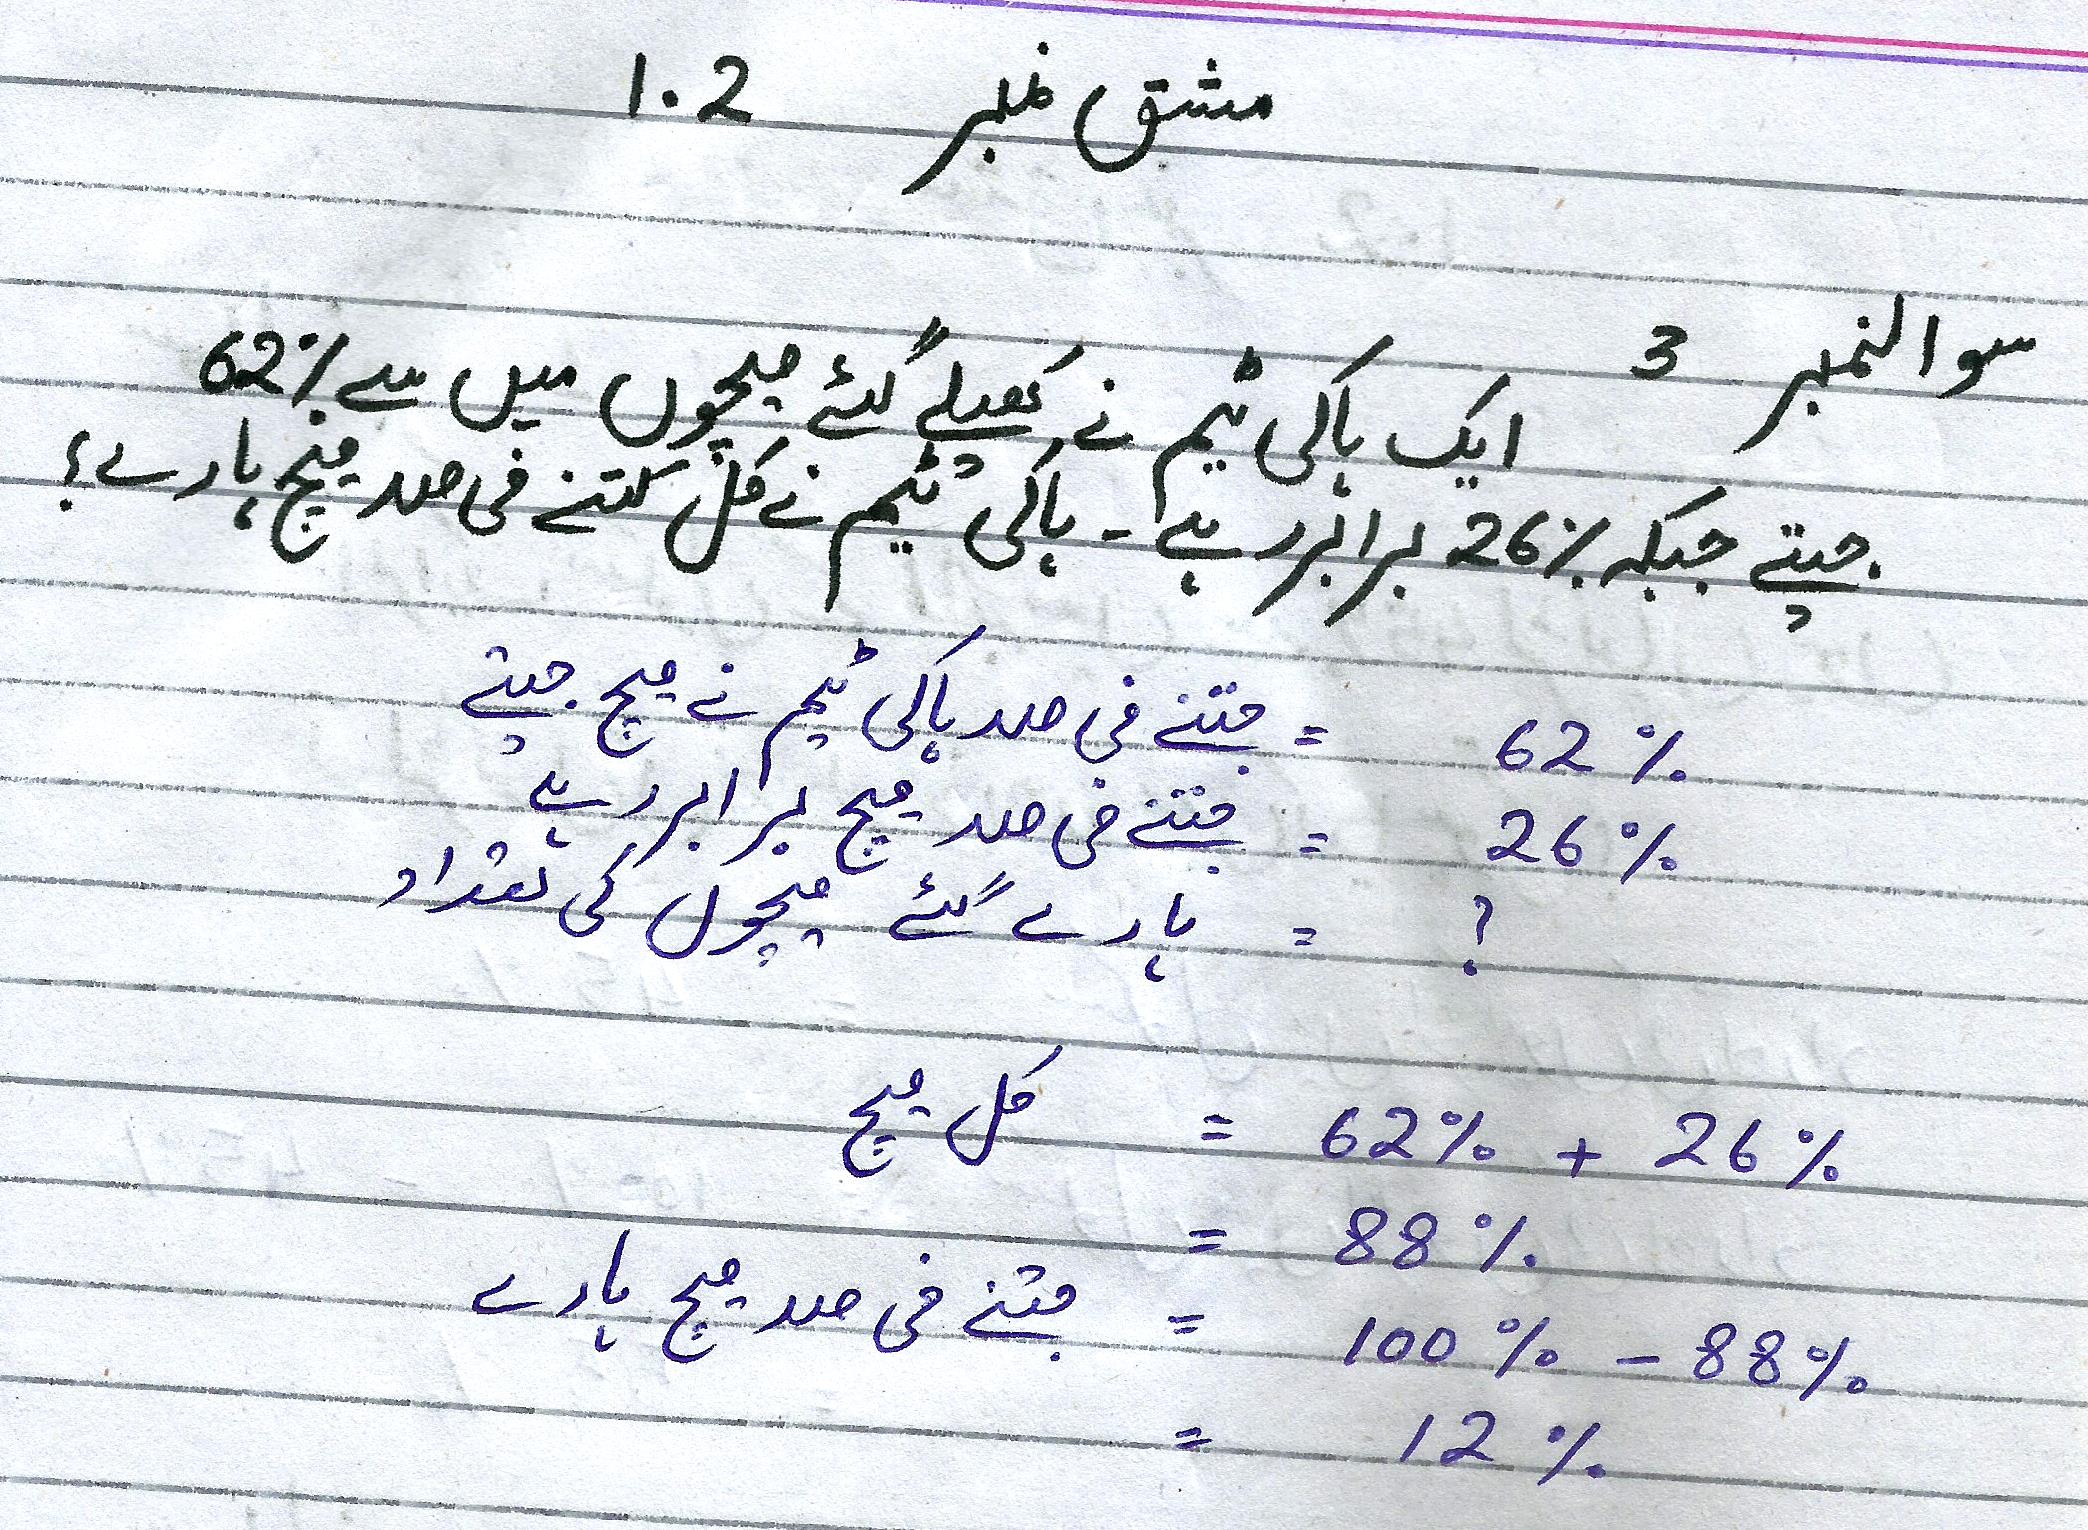 مشق نمبر 1.2
سوالنمبر 3
ایک ہاکی ٹیم نے کھیلے گئے میچوں میں سے 62%
جیتے جبکہ 26% برابر رہے - ہاکی ٹیم نے کل کتنے فی صد میچ ہارے؟
جتنے فی صد ہاکی ٹیم نے میچ جیتے = 62%
جتنے فی صد میچ برابر رہے = 26%
ہارے گئے میچوں کی تعداد = ?
کل میچ = 62% + 26%
= 88%
جتنے فی صد میچ ہارے = 100% - 88%
= 12%